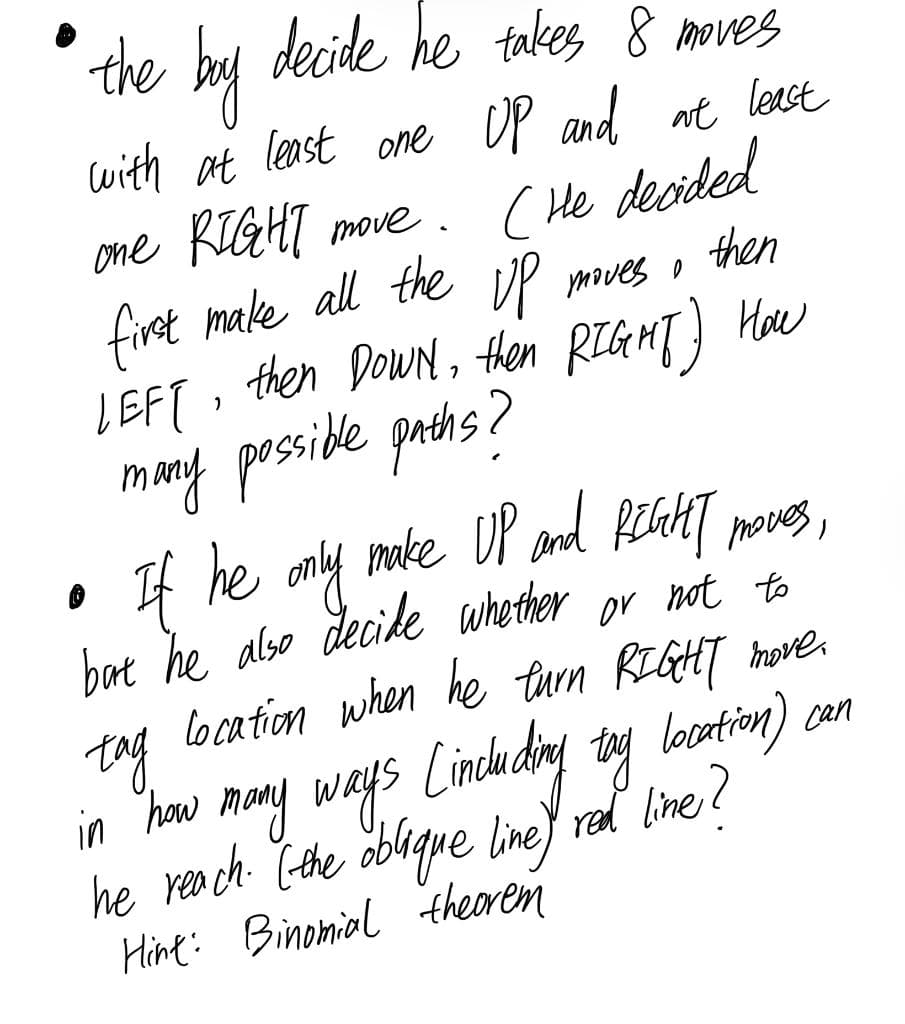 • the boy decide he takes 8 moves
with at least one UP and at least
one RIGHT move. (He decided
first make all the UP moves, then
LEFT, then DOWN, then RIGHT) How
many possible paths?
• If he only make UP and RIGHT moves,
but he also decide whether or not to
tag location when he turn RIGHT move.
in how many ways (including tag location) can
he reach. (the oblique line) red line?
Hint: Binomial theorem